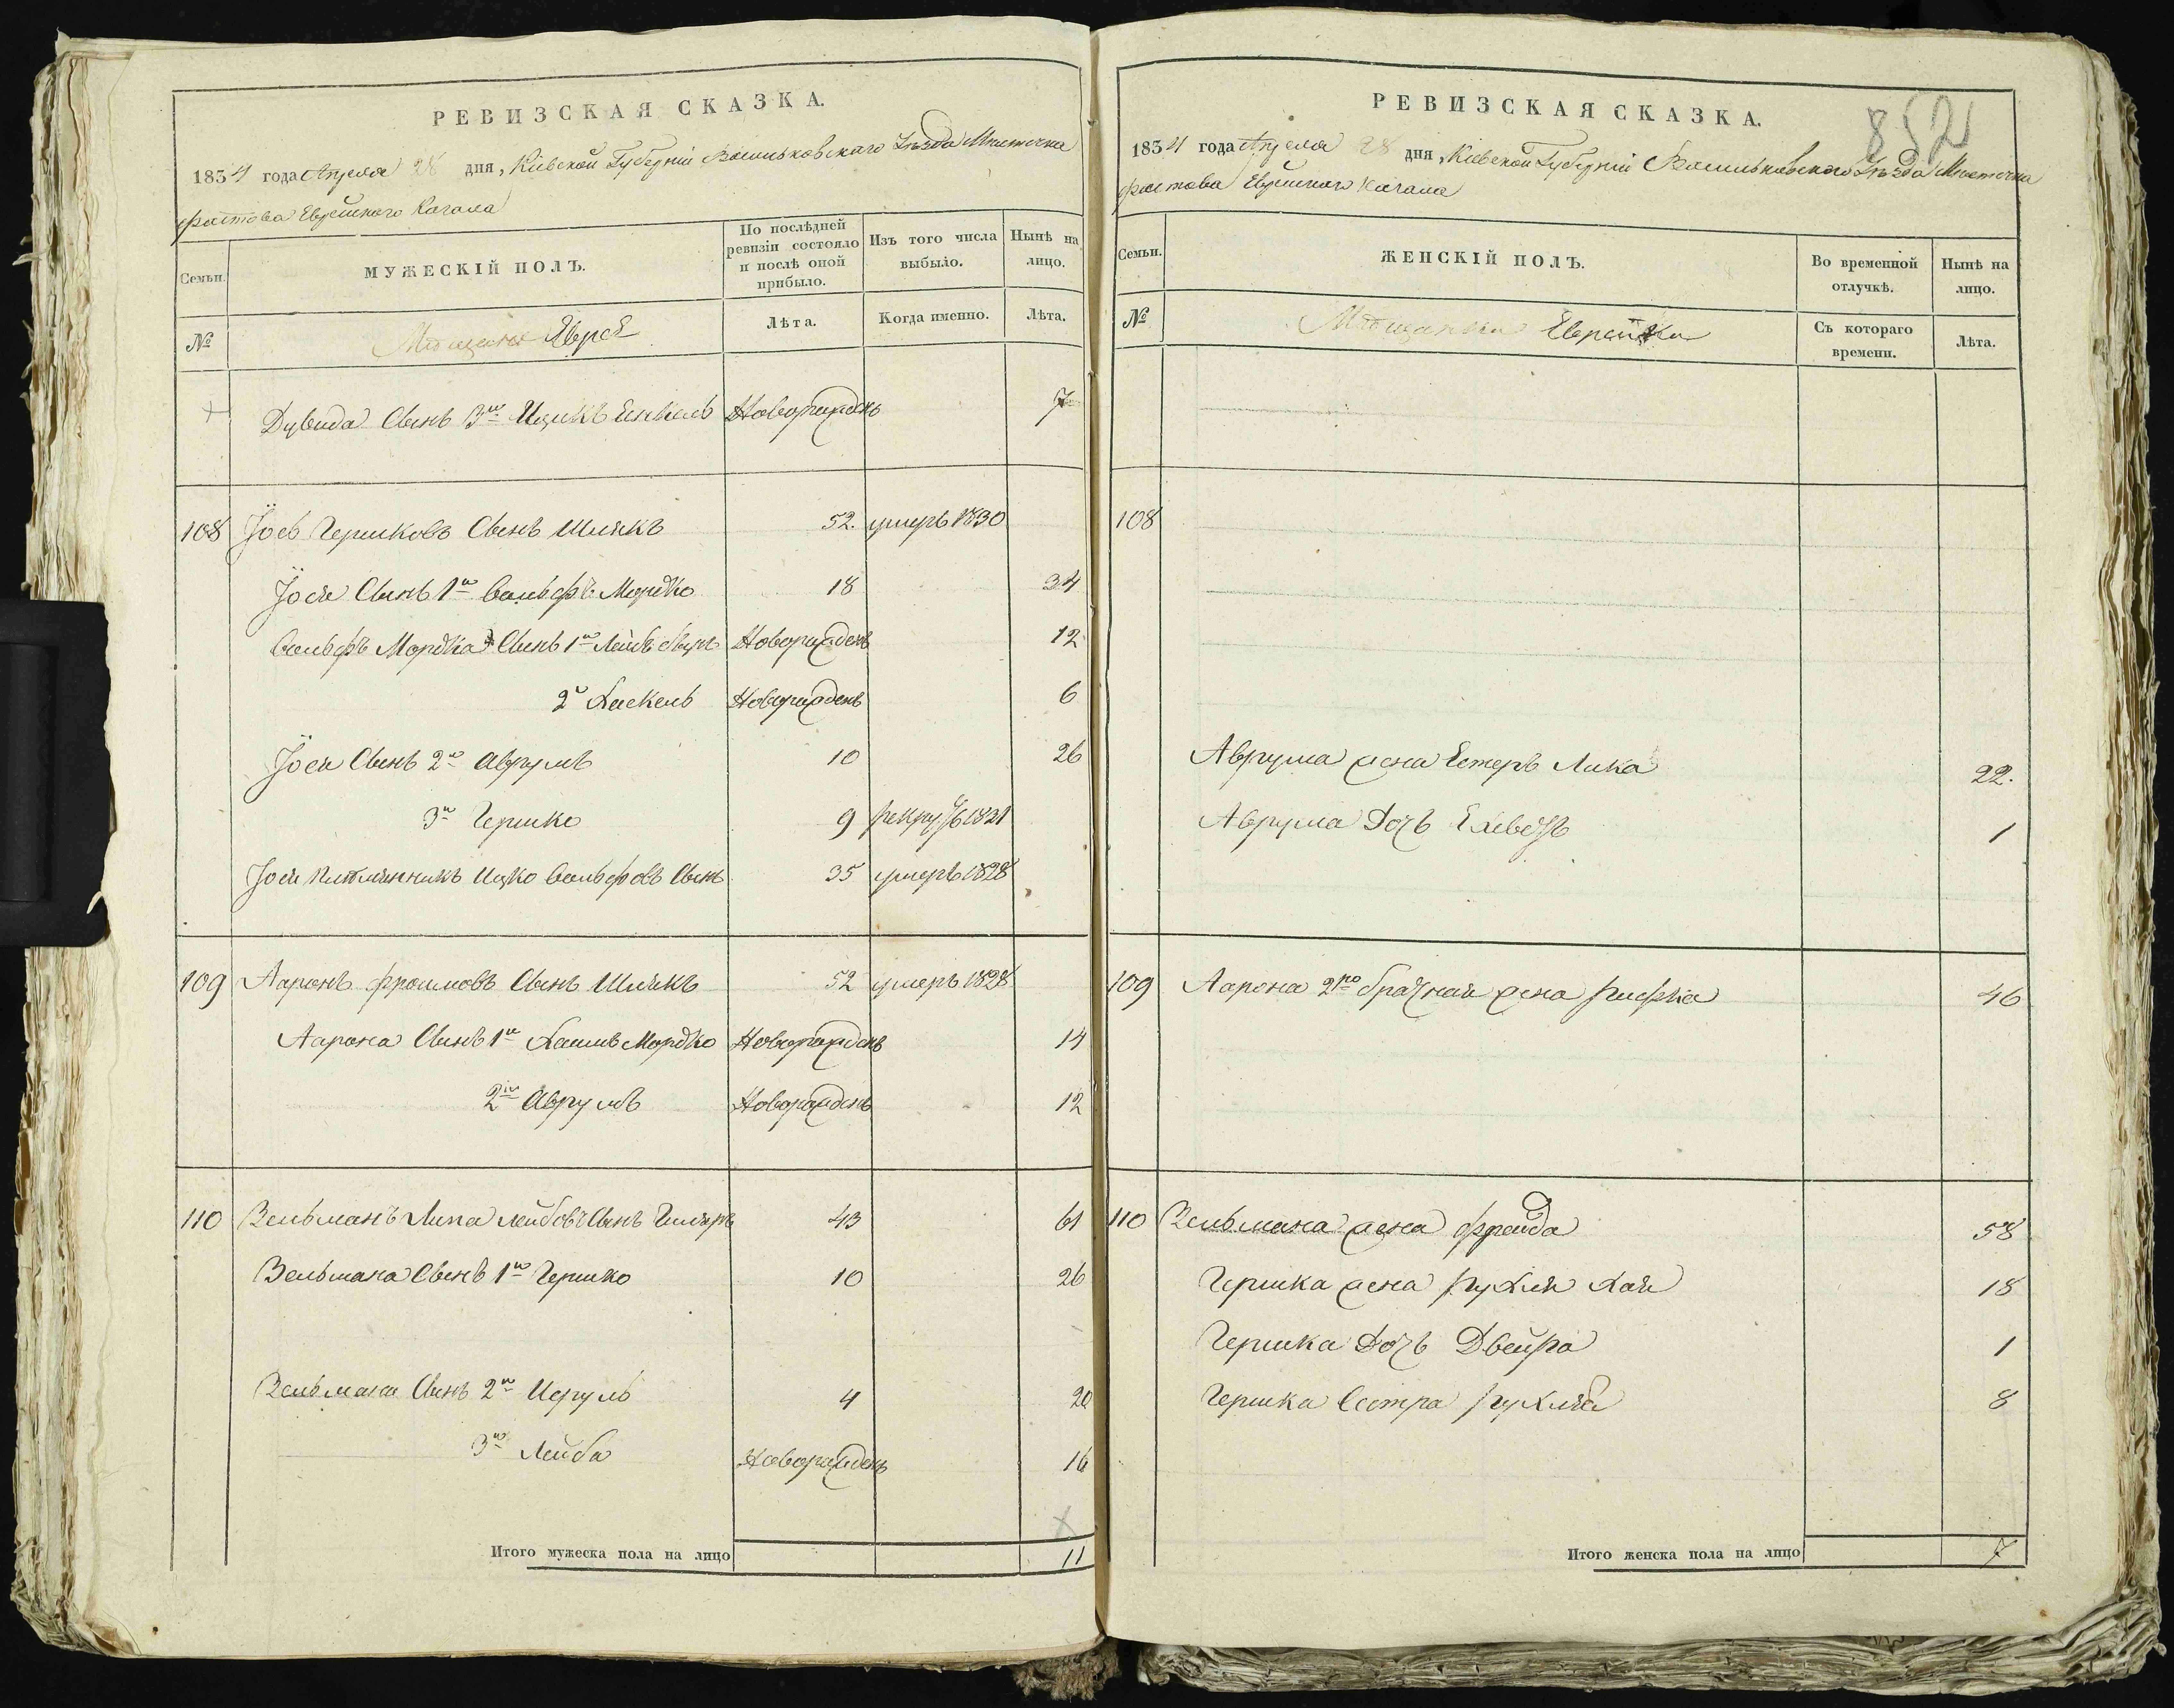 РЕВИЗСКАЯ СКАЗКА.
1834 года Апреля 28 дня, Кіевской Губерніи Васильковскаго Уѣзда Мѣстечка
Фастова Еврейскаго Кагала
Семьи.
МУЖЕСКІЙ ПОЛЪ.
По послѣдней ревизіи состояло и послѣ оной прибыло.
Изъ того числа выбыло.
Нынѣ на лицо.
№
Мѣщане Евреи
Лѣта.
Когда именно.
Лѣта.
Дувида Сынъ 3й Ицикъ Енкель Новорожденъ 7
108 Іось Гершковъ Сынъ Шлякъ 52. умеръ 1830
Іося Сынъ 1й Вольфъ Мордко 18 34
Вольфъ Мордка Сынъ 1й Лейбъ Новорожденъ 12
2й Хаскель Новорожденъ 6
Іося Сынъ 2й Аврумъ 10 26
3й Гершко 9 рекрутъ 1821
Іося племянникъ Ицко Вольфовъ Сынъ 35 умеръ 1828
109 Ааронъ Фроимовъ Сынъ Шлякъ 52 умеръ 1828
Аарона Сынъ 1й Хаимъ Мордко Новорожденъ 14
2й Аврумъ Новорожденъ 12
110 Зельманъ Липа Лейбовъ Сынъ 43 61
Зельмана Сынъ 1й Гершко 10 26
Зельмана Сынъ 2й Исруль 4 20
3й Лейба Новорожденъ 16
Итого мужеска пола на лицо 11
852
РЕВИЗСКАЯ СКАЗКА.
1834 года Апреля 28 дня, Кіевской Губерніи Васильковскаго Уѣзда Мѣстечка
Фастова Еврейскаго Кагала
Семьи.
ЖЕНСКІЙ ПОЛЪ.
Во временной отлучкѣ.
Нынѣ на лицо.
№
Мѣщанки Еврейки
Съ котораго времени.
Лѣта.
108
Аврума жена Естеръ Лика 22.
Аврума Дочь 1
109 Аарона 2но брачная жена Рифка 46
110 Зельмана жена Фрейда 58
Гершка жена Рухля Хая 18
Гершка Дочь Двейра 1
Гершка Сестра Рухля 8
Итого женска пола на лицо 7